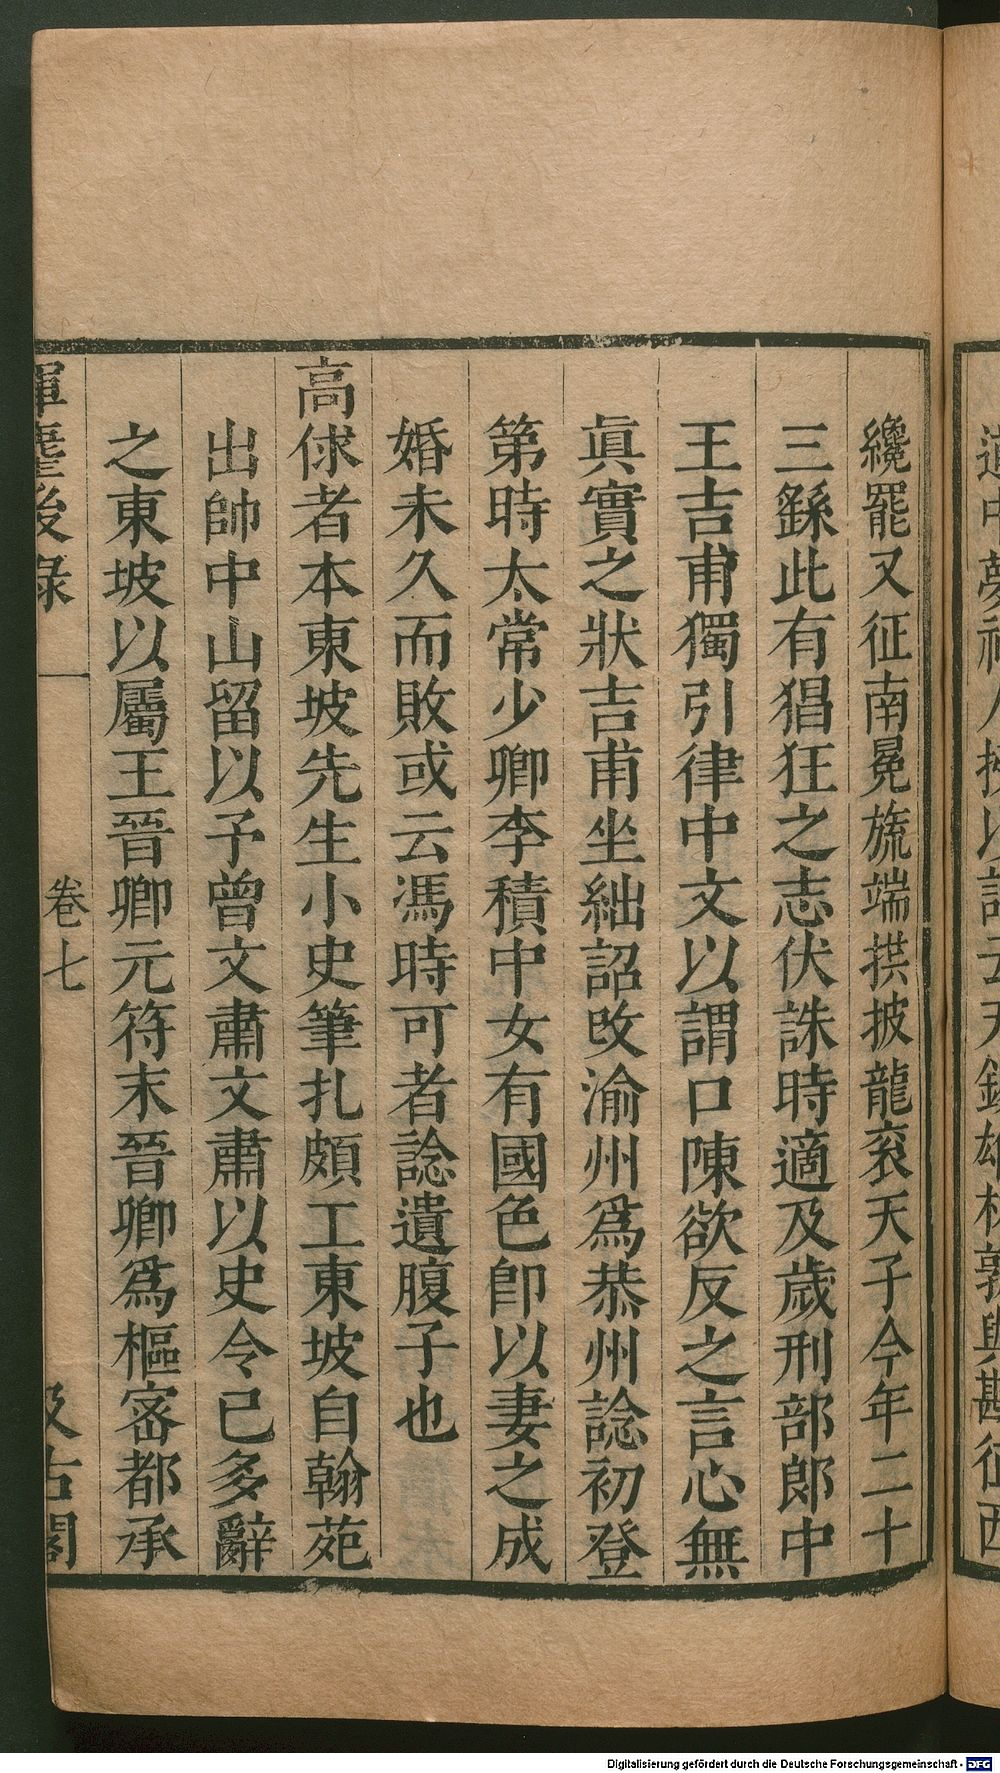 纔罷又征南冕旒端拱披龍衮天子今年二十
三繇此有猖狂之志伏誅時適及歲刑部郎中
王吉甫獨引律中文以謂口陳欲反之言心無
眞實之狀吉甫坐絀詔改渝州爲恭州諗初登
第時太常少卿李積中女有國色卽以妻之成
婚未久而敗或云馮時可者諗遺腹子也
高俅者本東坡先生小史筆扎頗工東坡自翰苑
出帥中山留以予曾文肅文肅以史令已多辭
之東坡以屬王晉卿元符末晉卿爲樞宻都承
揮麈後錄
卷七
汲古閣
Digitalisierung gefördert durch die Deutsche Forschungsgemeinschaft - DFG